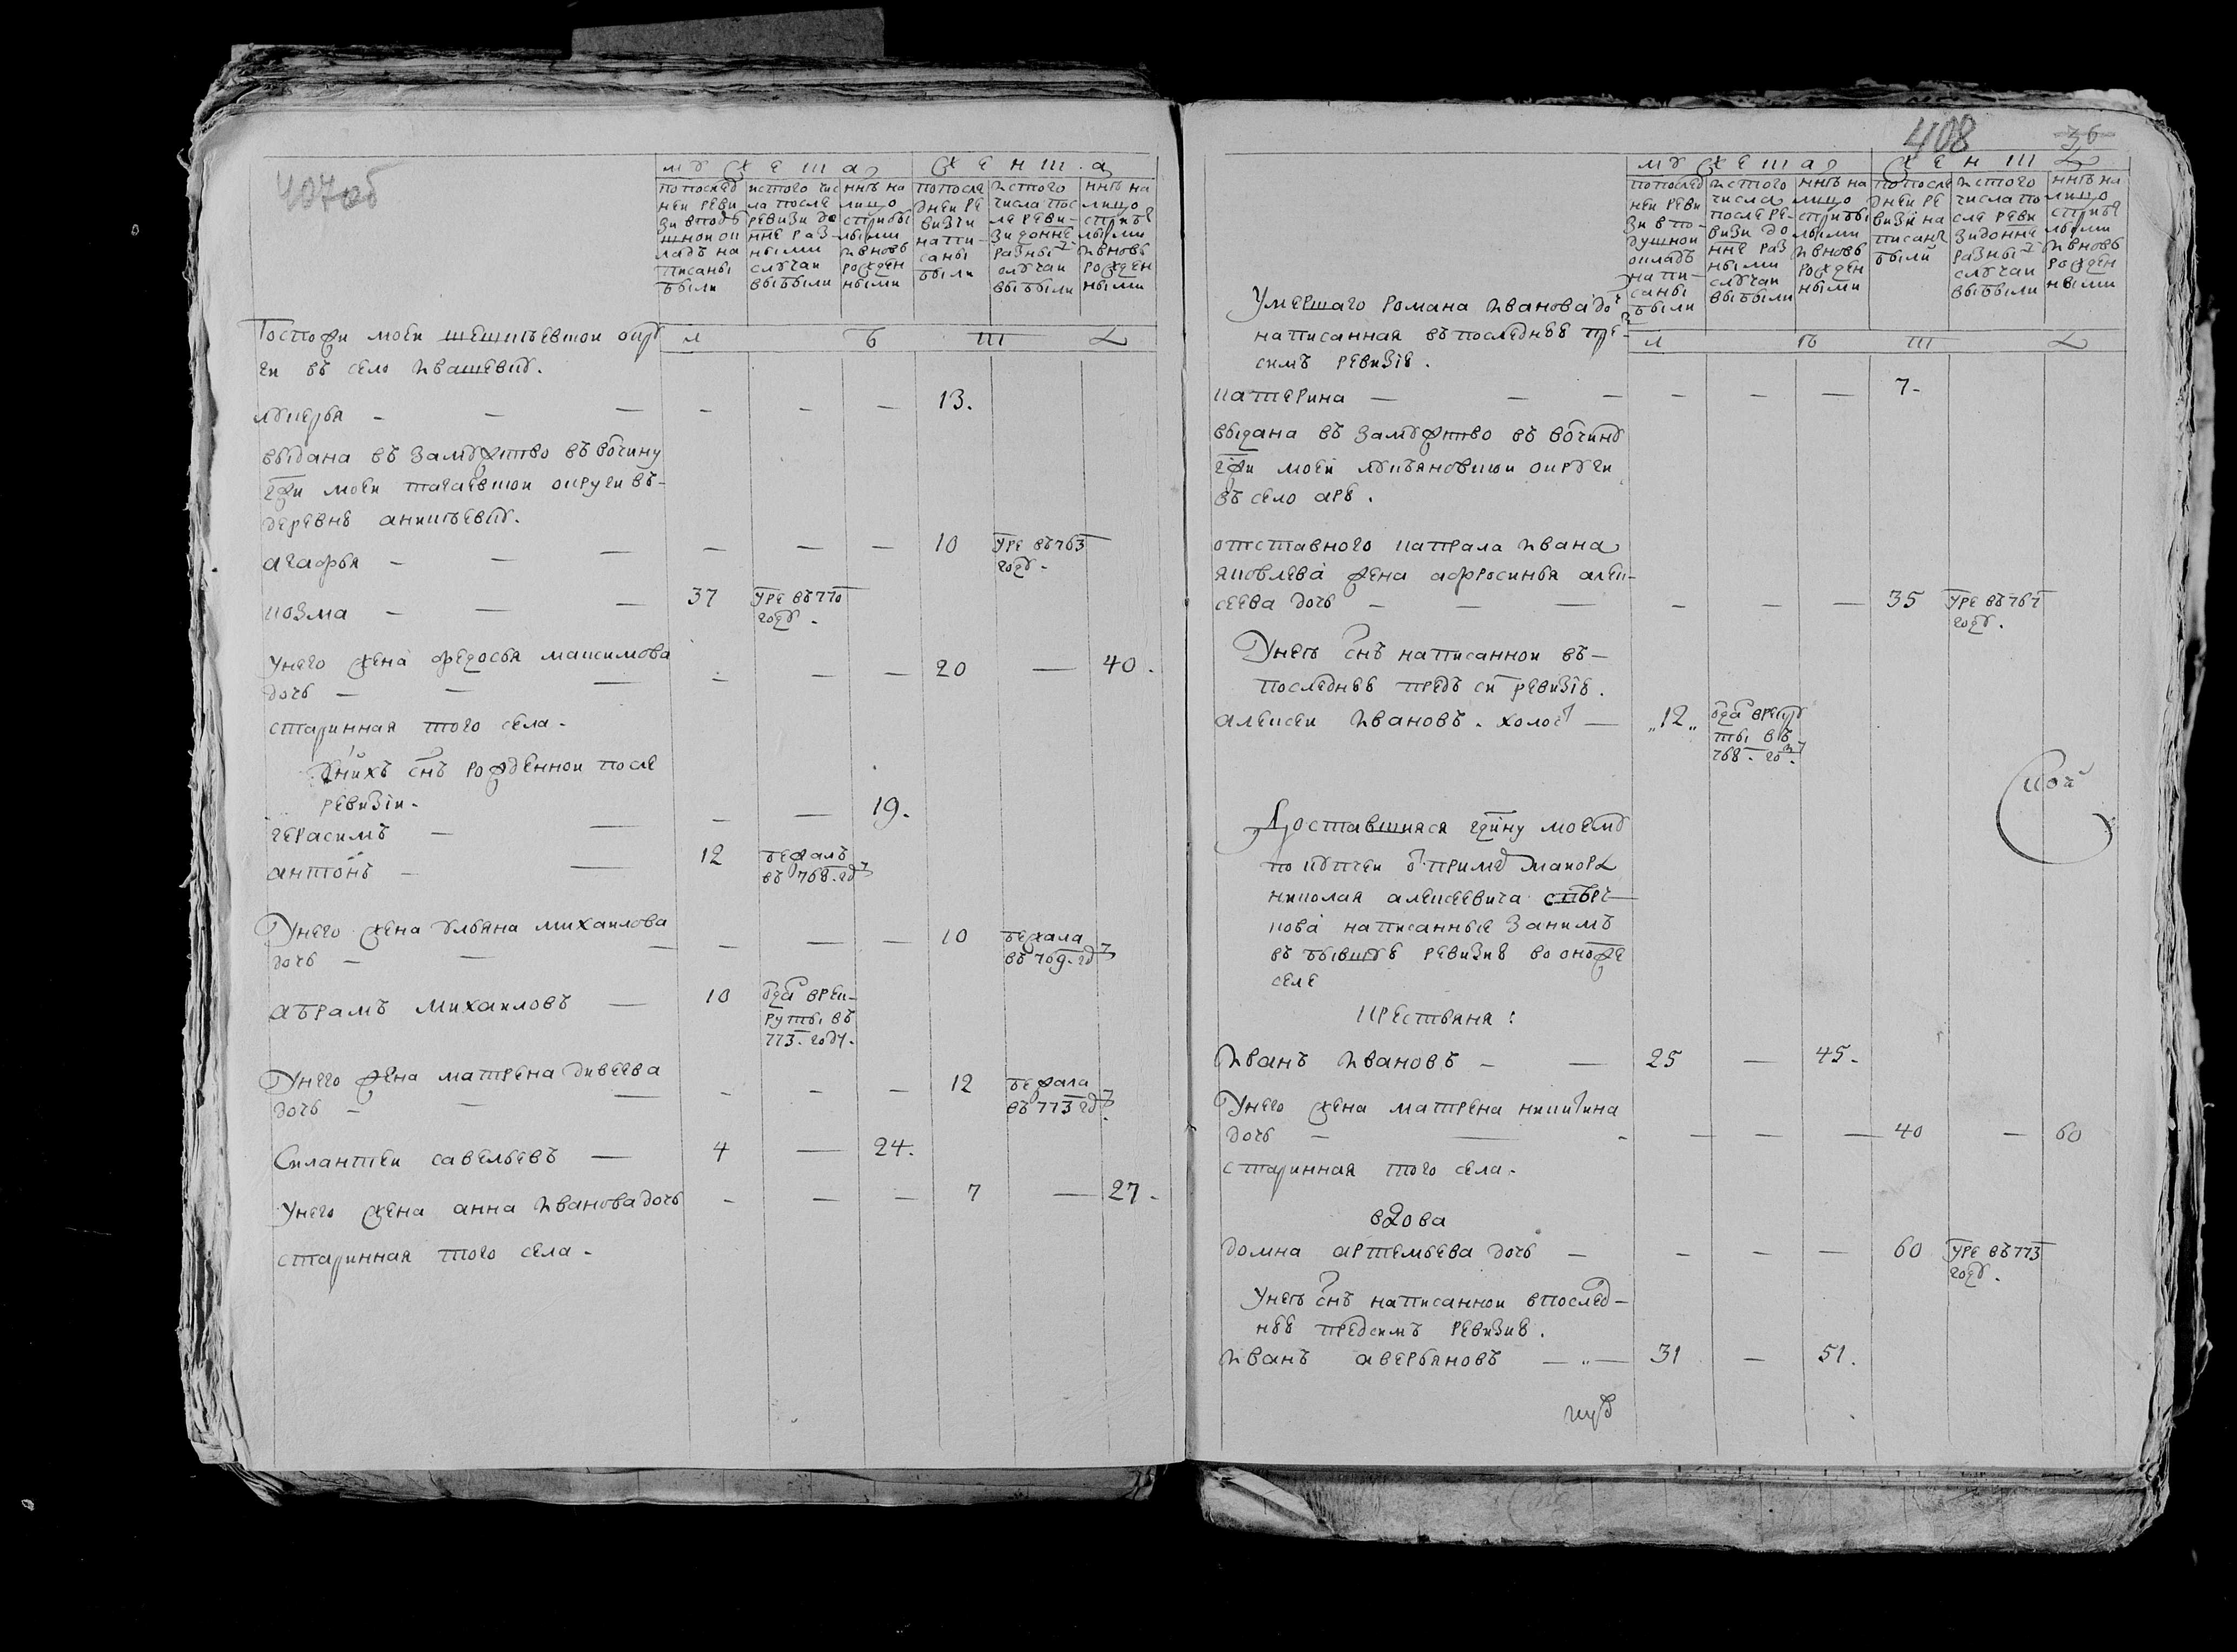 407об
мужеска
женска
по послед
ней реви
зи в поду
шной ок
ладъ на
писаны
были
ис того чис
ла после
ревизи до
нне раз
ными
случаи
выбыли
ннѣ на
лицо
с прибы
лыми
и вновь
рожден
ными
по после
дней ре
визїи
напи-
саны
были
ис того
числа пос
ле реви-
зи до нне
разны
случаи
выбыли
ннѣ на
лицо
с прибы
лыми
и вновь
рожден
ными
ги въ село Ивашевку.
лукерья - - - - - - 13.
выдана въ замужство въ вочину
гжи моей тагаевской округи въ-
деревне аникѣевку.
агафья - - - - - - 10 уре въ 763
году.
козма - - - 37 уре въ 770
году.
Унего жена федосья максимова
дочь - - - - - - 20 - 40.
старинная того села.
Уних снъ рожденной после
ревизїи.
герасимъ - - - - 19.
антонъ - - 12 бежалъ
въ 768. гду
Унего жена ульяна михаилова
дочь - - - - - - 10 бежала
въ 769. гду
абрамъ михаиловъ - 10 ода врек-
руты въ
773. году.
Унего жена матрена дивеева
дочь - - - - - - 12 бежала
въ 773 гду
Силантеи савельевъ - 4 - 24.
Унего жена анна Ивановадочь - - - 7 - 27.
старинная того села.
408
36
мужеска
женска
по послед
ней реви
зи в по-
душной
окладъ
напи-
саны
были
ис того
числа
после ре-
визи до
нне раз
ными
случаи
выбыли
ннѣ на
лицо
с прибы
лыми
и вновь
рожден
ными
по после
дней ре
визїи на
писаны
были
ис того
числа по
сле реви
зи до нне
разны
случаи
выбыли
ннѣ на
лицо
с прибы
лыми
и вновь
рожден
ными
Умершаго Романа Иванова дочь
написанная въ последнѣѣ пре
симъ ревизїе.
катерина - - - - - - 7-
выдана въ замужтво въ вочину
гжи моей лукьяновской округи
въ село аре.
отставного капрала Ивана
яковлева жена афросинья алек-
сеева дочь - - - - - - 35 уре въ 767
году.
Унеѣ снъ написанной въ-
последнѣѣ предъ си ревизїе.
алексеи Ивановъ. холост - „12„ ода врекру
ты въ
768. году
кой
Доставшияся гдину моему
по купчеи от примо маиора
николая алексеевича
кова написанные за нимъ
въ бывшую ревизию во оножѣ
селе
крестьяня:
Иванъ Ивановъ - - 25 - 45.
Унего жена матрена никитина
дочь - - - - - - 40 - 60
старинная того села.
вдова
домна артемьева дочь - - - - 60 уре въ 773
году.
Унеѣ снъ написанной в послед-
нѣѣ предсимъ ревизиѣ.
Иванъ аверьяновъ - 31 - 51.